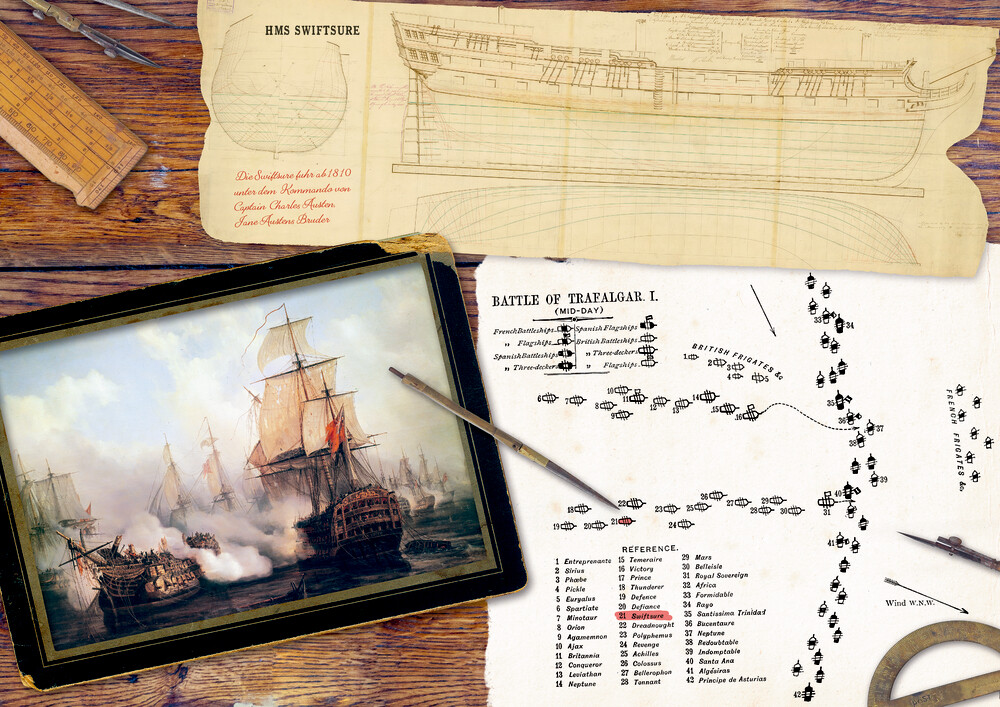 HMS SWIFTSURE
Die Swiftsure fuhr ab 1810
unter dem Kommando von
Captain Charles Austen,
Jane Austens Bruder
BATTLE OF TRAFALGAR. I.
(MID-DAY)
French Battleships
Spanish Flagships
„ Flagships
British Battleships
Spanish Battleships
„ Three-deckers
„ Three-deckers
„ Flagships
BRITISH FRIGATES &c
FRENCH FRIGATES &c.
1
2
3
4
5
6
7
8
9
10
11
12
13
14
15
16
33
34
35
36
37
38
39
40
31
41
42
17
18
19
20
21
22
23
24
25
26
27
28
29
30
Wind W.N.W.
REFERENCE.
1 Entreprenante
2 Sirius
3 Phœbe
4 Pickle
5 Euryalus
6 Spartiate
7 Minotaur
8 Orion
9 Agamemnon
10 Ajax
11 Britannia
12 Conqueror
13 Leviathan
14 Neptune
15 Temeraire
16 Victory
17 Prince
18 Thunderer
19 Defence
20 Defiance
21 Swiftsure
22 Dreadnought
23 Polyphemus
24 Revenge
25 Achilles
26 Colossus
27 Bellerophon
28 Tonnant
29 Mars
30 Belleisle
31 Royal Sovereign
32 Africa
33 Formidable
34 Rayo
35 Santissima Trinidad
36 Bucentaure
37 Neptune
38 Redoubtable
39 Indomptable
40 Santa Ana
41 Algésiras
42 Principe de Asturias